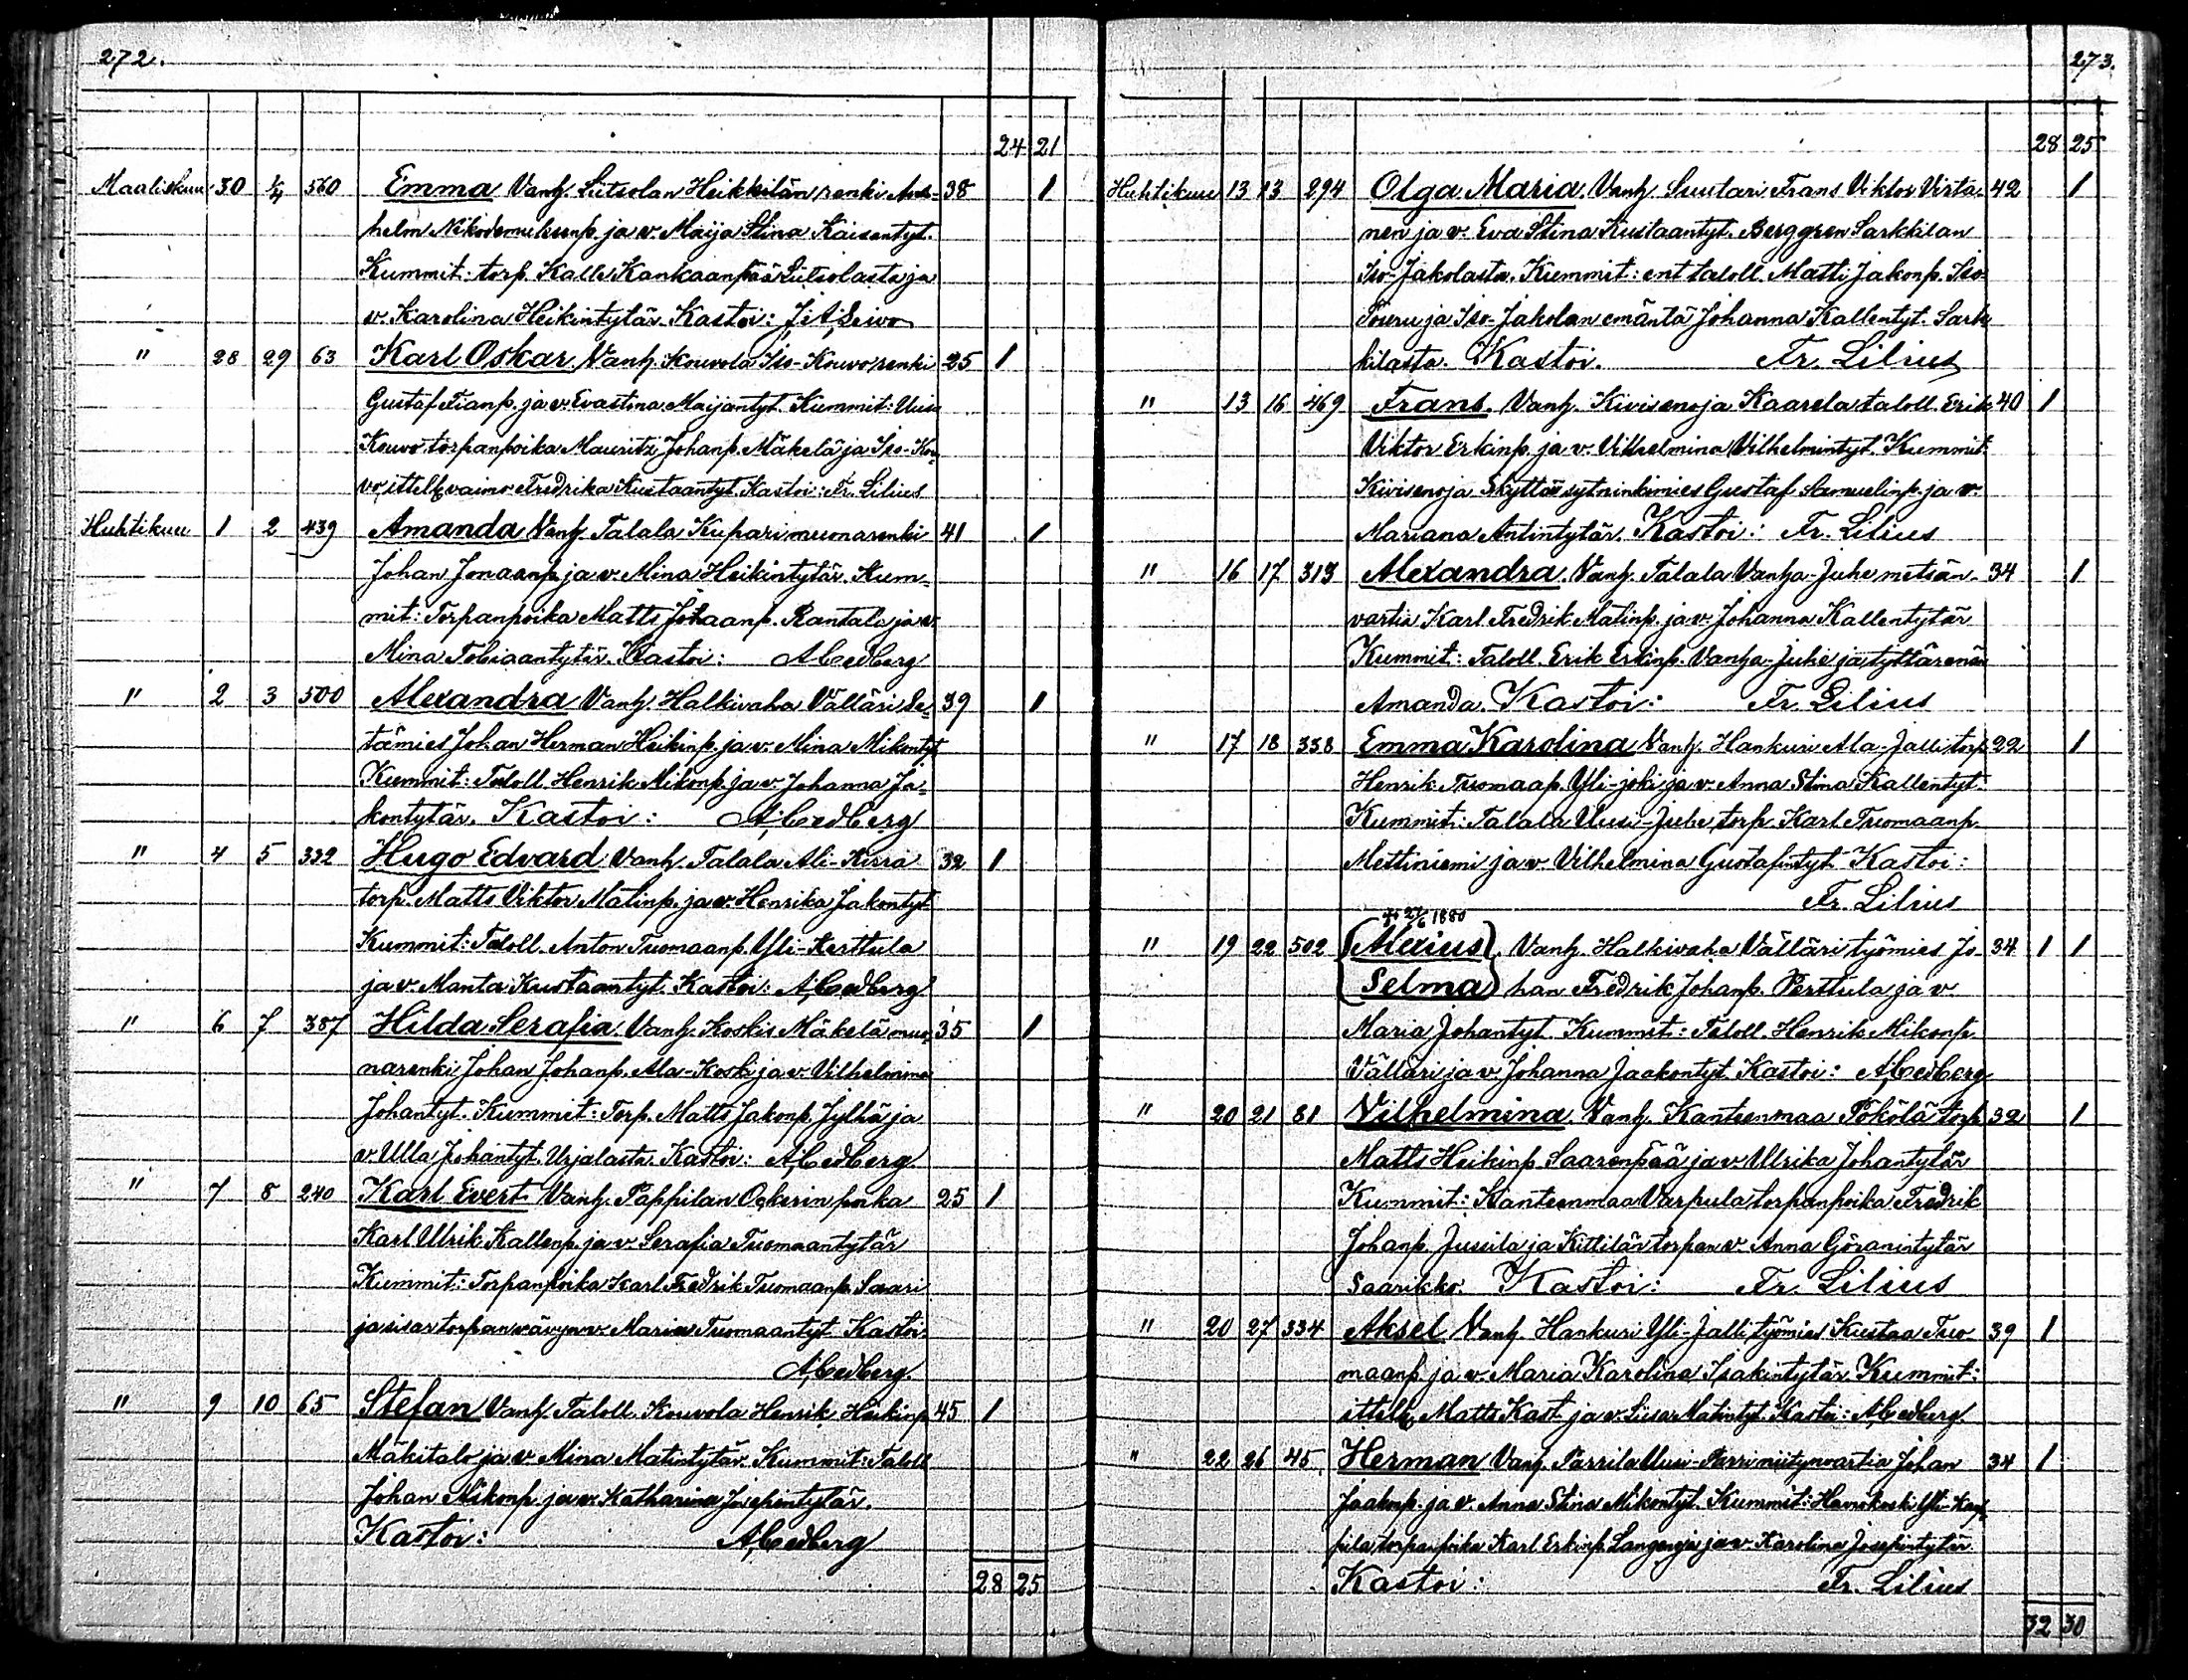 272.
24 21
Maaliskuu 30 1/4 560 Emma Vanh. Sutsolan Heikkilän renki Ans- 38 1
helm Nikodemuksenp. ja v. Maija Stina Kaisantyt.
Kummit: torp. Kalle Kankaanpää Sutsolasta ja
v. Karolina Heikintytär. Kastoi:
" 28 29 63 Karl Oskar Vanh. Kouvola Iso-Kouvo renki 25 1
Gustaf ja v. Evastina Maijantyt. Kummit: Uusi
Kouvo torpanpoika Mauritz Johanp. Mäkelä ja Iso-Kou-
vo ittell. vaimo Fredrika Kustaantyt. Kastoi: Fr. Lilius
Huhtikuu 1 2 439 Amanda Vanh. Talala Kupari muonarenki 41 1
Johan Jonaanp. ja v. Mina Heikintytär. Kum-
mit: Torpanpoika Matts Rantala ja v.
Mina Tobiaantytär. Kastoi: A. Cedberg
" 2 3 500 Alexandra Vanh. Halkivaha Välläri Se- 39 1
tämies Johan Herman Heikinp. ja v. Mina Mikontyt.
Kummit: Taloll. Henrik Mikonp. ja v. Johanna Ja-
kontytär. Kastoi: A. Cedberg
" 4 5 332 Hugo Edvard Vanh. Talala Ali-Kirra 32 1
torp. Matts Viktor Matinp. ja v. Henrika Jakontyt.
Kummit: Taloll. Anton Tuomaanp. Yli-Kerttula
ja v. Manta Kustaantyt. Kastoi: A. Cedberg
" 6 7 387 Hilda Serafia. Vanh. Koskis Mäkelä muo- 35 1
narenki Johan Johanp. Ala-Koski ja v. Vilhelmina
Johantyt. Kummit: Torp. Matts Jakonp. Jyltä ja
v. Ulla Johantyt. Urjalasta. Kastoi: A. Cedberg
" 7 8 240 Karl Evert Vanh. Pappilan Ockerin poika 25 1
Karl Ulrik Kallenp. ja v. Serafia Tuomaantytär
Kummit: Torpanpoika Karl Fredrik Tuomaanp. Saari
ja sisar torpan vävyn v. Maria Tuomaantyt. Kastoi:
A. Cedberg.
" 9 10 65 Stefan Vanh. Taloll. Kouvola Henrik Heikinp. 45 1
Mäkitalo ja v. Mina Matintytär. Kummit: Taloll.
Johan Mikonp. ja v. Katharina Josepintytär.
Kastoi: A. Cedberg
28 25
273.
28 25
Huhtikuu 13 13 294 Olga Maria. Vanh. Suutari Frans Viktor Virta- 42 1
nen ja v. Eva Stina Kustaantyt. Berggren Sarkkilan
Iso-Jakolasta. Kummit: ent taloll. Matti Jakonp. Iso
ja Iso-Jakolan emäntä Johanna Kallentyt. Sark
kilasta. Kastoi. Fr. Lilius
" 13 16 469 Frans. Vanh. Kivisenoja Kaarela taloll. Erik 40 1
Viktor Erkinp. ja v. Vilhelmina Vilhelmintyt. Kummit:
Kivisenoja Skyttär sytninkimies Gustaf Samuelinp. ja v.
Mariana Antintytär. Kastoi: Fr. Lilius
" 16 17 313 Alexandra. Vanh. Talala Vanha-Juhe metsän- 34 1
vartia Karl Fredrik Matinp. ja v. Johanna Kallentytär
Kummit: Taloll. Erik Erkinp. Vanha-Juhe ja tyttärensä
Amanda. Kastoi: Fr. Lilius
" 17 18 338 Emma Karolina Vanh. Hankuri Ala-Jalli torp. 22 1
Henrik Tuomaap. Yli-joki ja v. Anna Stina Kallentyt.
Kummit: Talala Uusi-Juhe torp. Karl Tuomaanp.
Mettiniemi ja v. Vilhelmina Gustafintyt. Kastoi:
Fr. Lilius
1880
" 19 22 502 (Alexius) Vanh. Halkivaha Välläri työmies Jo- 34 1 1
(Selma) han Fredrik Johanp. Perttula ja v.
Maria Johantyt. Kummit: Taloll. Henrik Mikonp.
Välläri ja v. Johanna Jaakontyt. Kastoi: A. Cedberg
" 20 21 81 Vilhelmina. Vanh. Kanteenmaa Pökölä torp. 32 1
Matts Heikinp. Saarenpää ja v. Ulrika Johantytär
Kummit: Kanteenmaa Varpula torpanpoika Fredrik
Johanp. Jussila ja Kittilän torpan v. Anna Göranintytär
Saarikko. Kastoi: Fr. Lilius
" 20 27 334 Aksel Vanh. Hankuri Yli-Jalli työmies Kustaa Tuo 39 1
maanp. ja v. Maria Karolina Isakintytär. Kummit:
ittell. Matts Kast ja v. Liisa Matintyt. Kastoi: A. Cedberg.
" 22 26 45. Herman Vanh. Parrila Uusi-Parri niitynvartia Johan 34 1
Jaakonp. ja v. Anna Stina Mikontyt. Kummit: Hanskoski Yli-Kap-
pila torpanpoika Karl Erkinp. Langenoja ja v. Karolina Josepintytär
Kastoi: Fr. Lilius
32 30